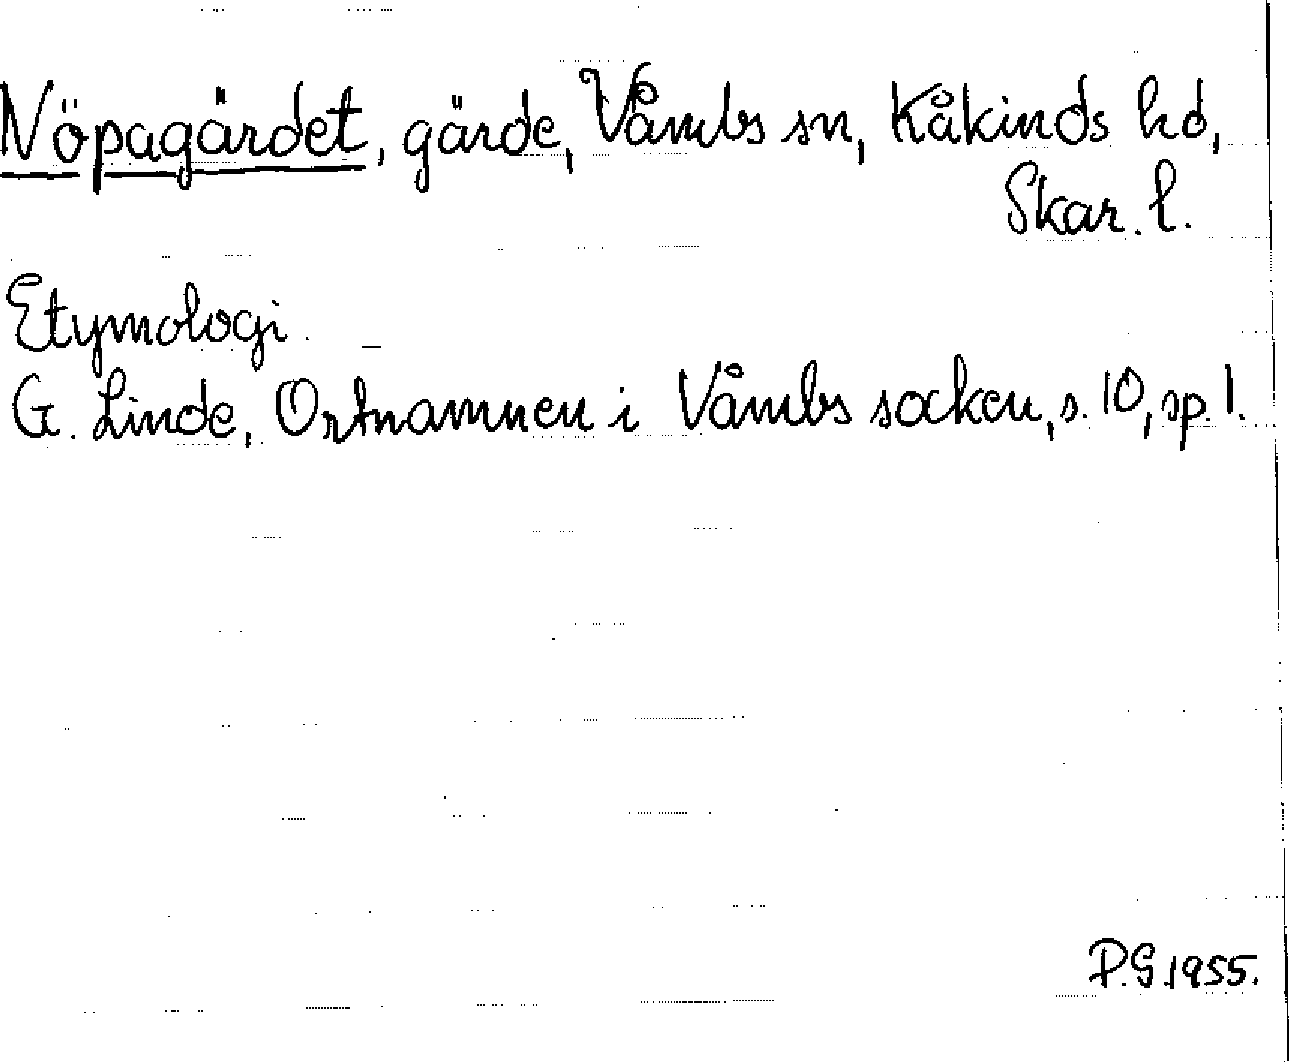 Nöpagärdet, gärde, Våmbs sn, Kåkinds hd,
Skar. l.
Etymologi.
G. Linde, Ortnamnen i Våmbs socken, s. 10, sp. 1.
P.G. 1955.